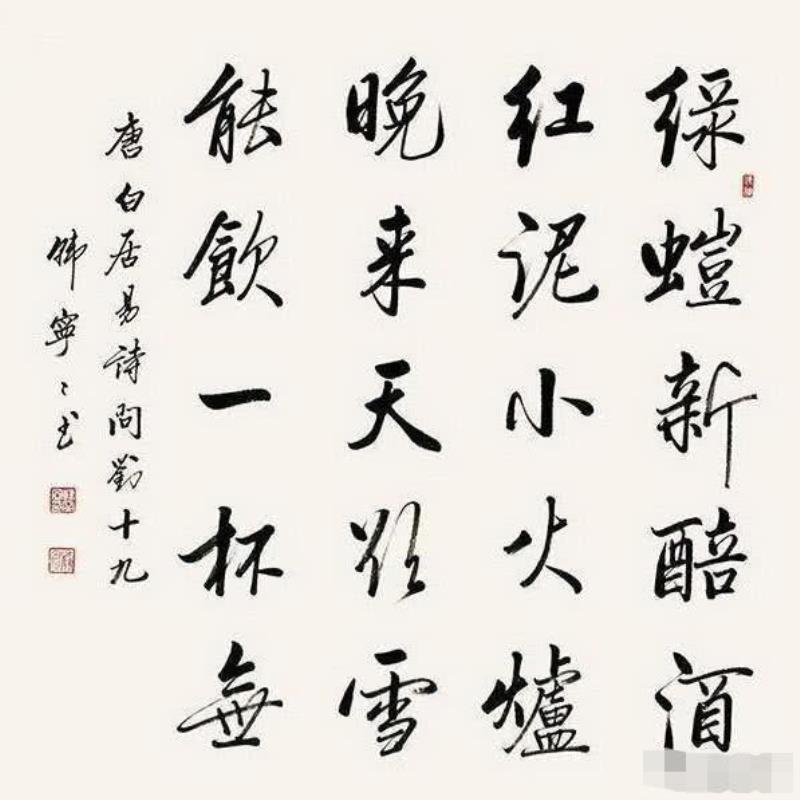 绿螘新醅酒
红泥小火爐
晚来天欲雪
能飲一杯無
唐白居易詩問劉十九
韩寧〻书